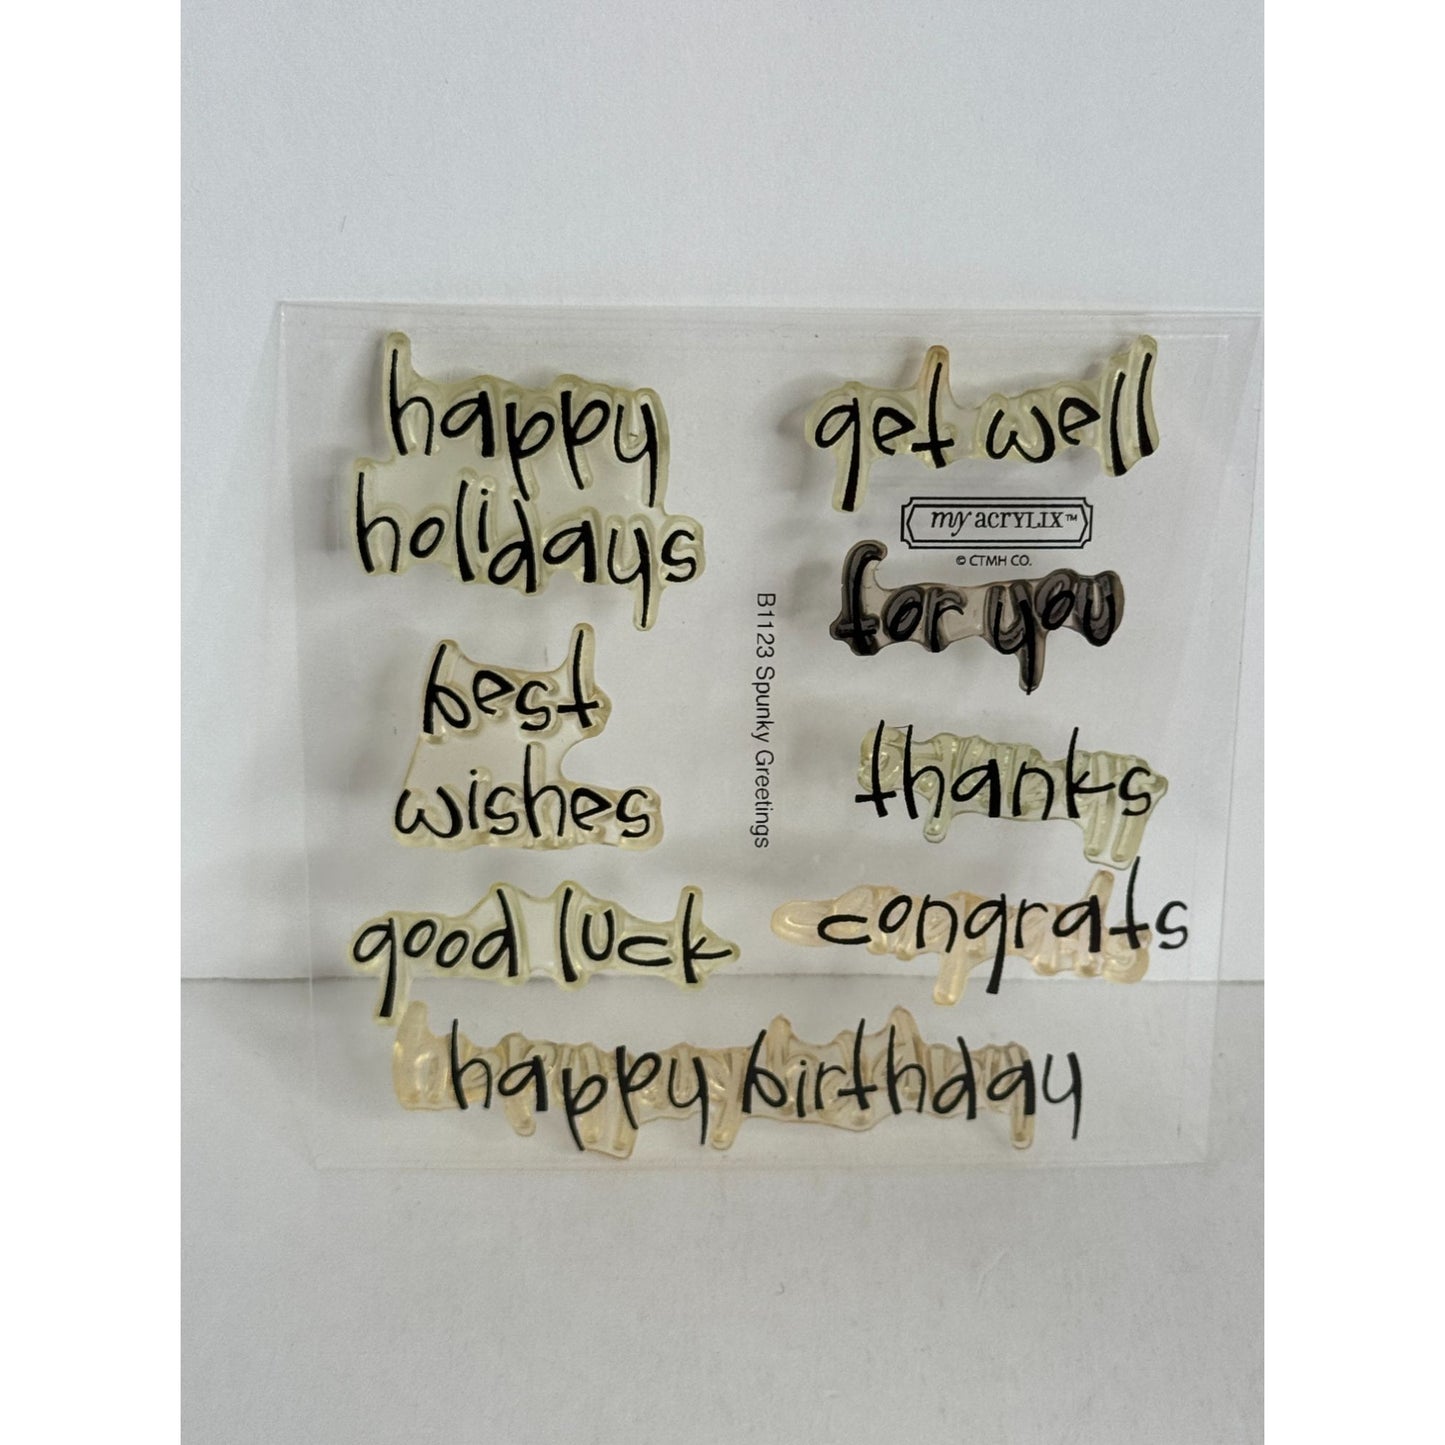 happy
holidays
get well
my acrylix™
© CTMH CO.
for you
B1123 Spunky Greetings
best
wishes
thanks
good luck
congrats
happy birthday